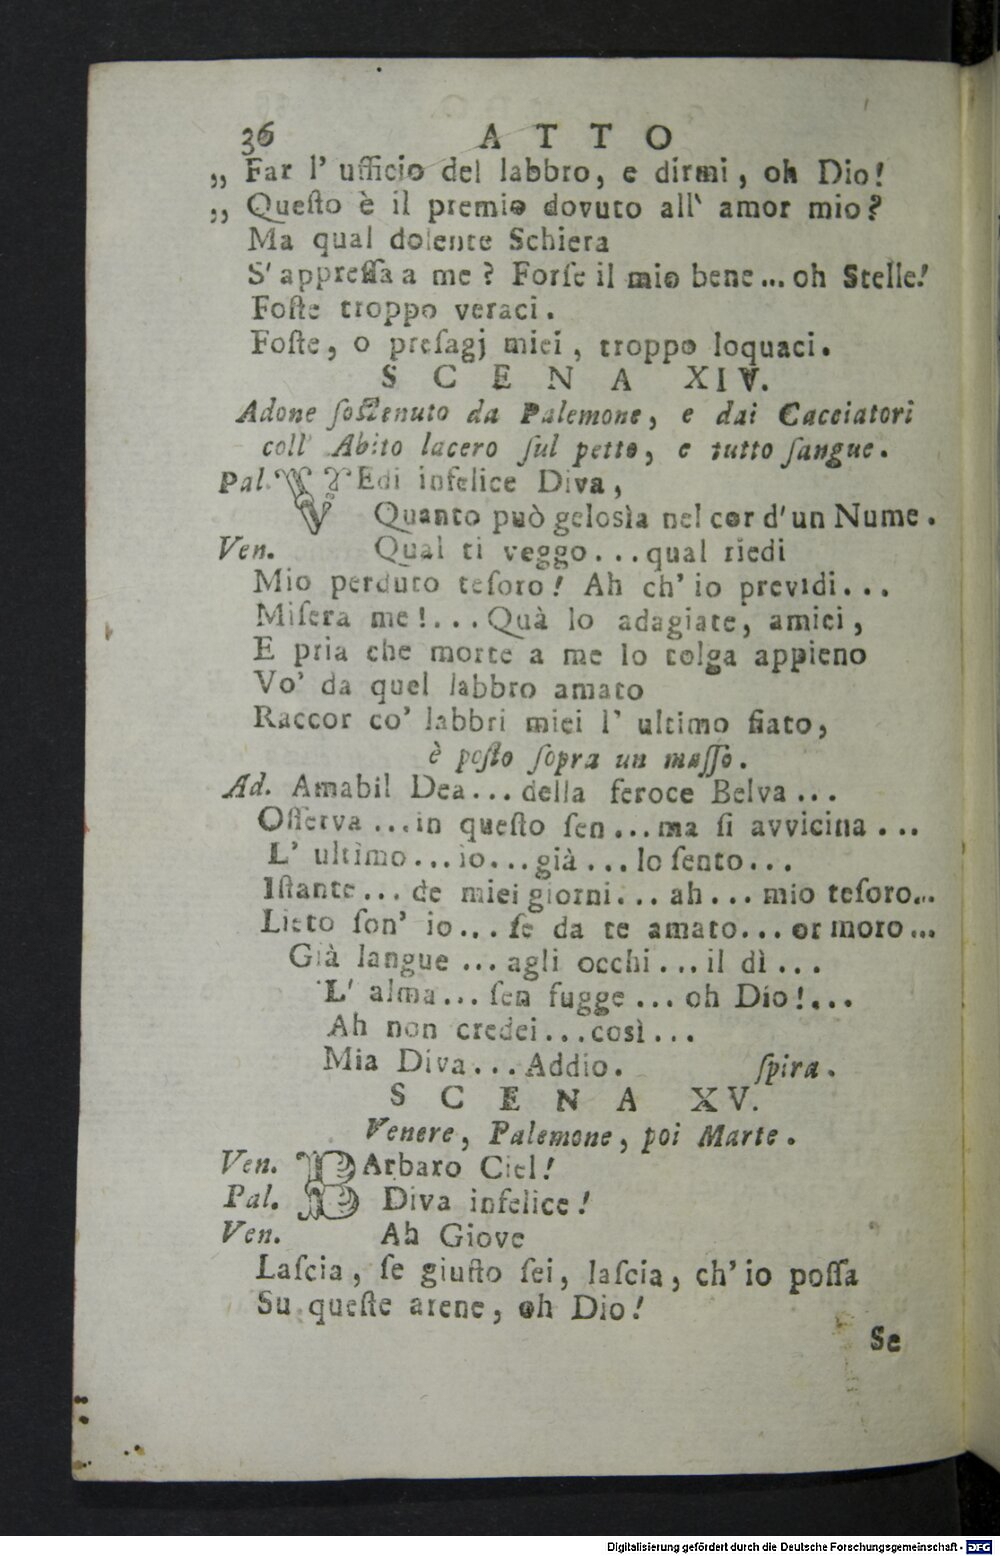 36 ATTO
„ Far l' ufficio del labbro, e dirmi, oh Dio!
„ Queſto è il premio dovuto all' amor mio?
Ma qual dolente Schiera
S' appreſſa a me? Forſe il mio bene... oh Stelle!
Foſte troppo veraci.
Foſte, o preſagj miei, troppo loquaci.
SCENA XIV.
Adone ſoſtenuto da Palemone, e dai Cacciatori
coll' Abito lacero ſul petto, e tutto ſangue.
Pal. VEdi infelice Diva,
Quanto può gelosìa nel cor d'un Nume.
Ven. Qual ti veggo...qual riedi
Mio perduto teſoro! Ah ch' io previdi...
Miſera me!...Quà lo adagiate, amici,
E pria che morte a me lo tolga appieno
Vo' da quel labbro amato
Raccor co' labbri miei l' ultimo fiato,
è poſto ſopra un maſſo.
Ad. Amabil Dea...della feroce Belva...
Oſſerva...in queſto ſen...ma ſi avvicina...
L' ultimo...io...già...lo ſento...
Iſtante...de miei giorni...ah...mio teſoro...
Lieto ſon' io...ſe da te amato...or moro...
Già langue...agli occhi...il dì...
L' alma...ſen fugge...oh Dio!...
Ah non credei...così...
Mia Diva...Addio. ſpira.
SCENA XV.
Venere, Palemone, poi Marte.
Ven. BArbaro Ciel!
Pal. Diva infelice!
Ven. Ah Giove
Laſcia, ſe giuſto ſei, laſcia, ch' io poſſa
Su queſte arene, oh Dio!
Se
Digitalisierung gefördert durch die Deutsche Forschungsgemeinschaft - DFG